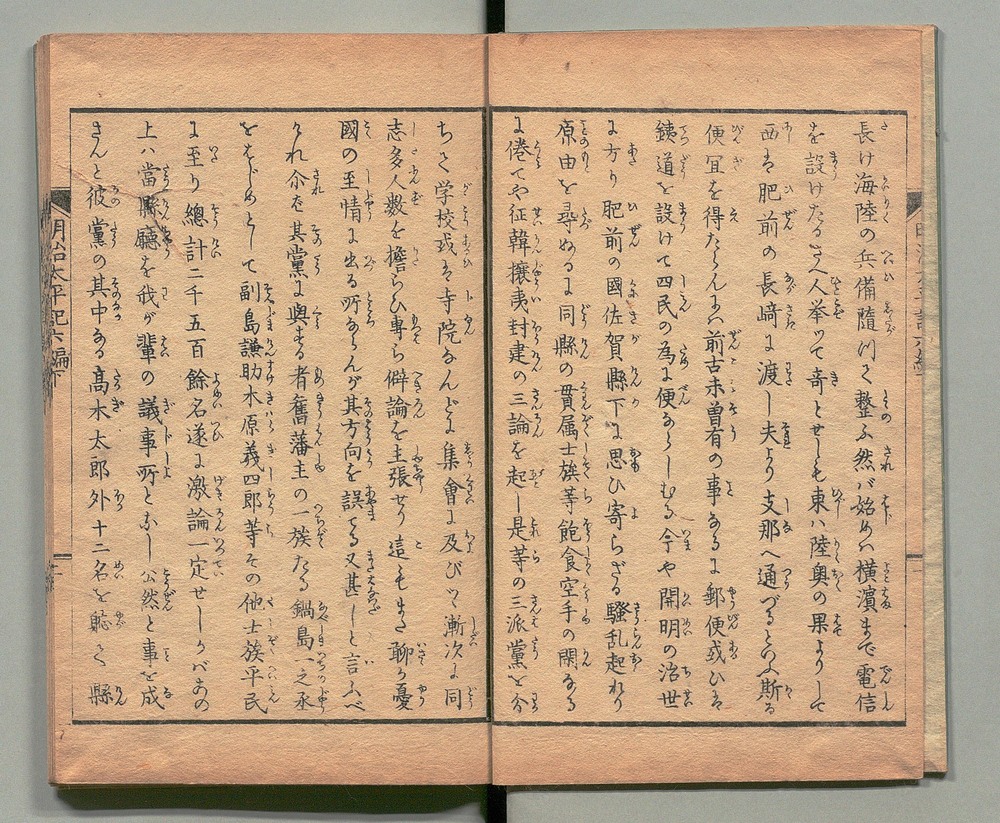 長け海陸の兵備随つて整ふ然バ始めハ横濱まで電信
を設けたるさへ人挙ッて奇とせしも東ハ陸奥の果よりして
西は肥前の長﨑に渡し夫より支那へ通づるといふ斯る
便宜を得たらんにハ前古未曽有の事なるに郵便或ひは
銕道を設けて四民の為に便ならしむる今や開明の治世
に方り肥前の國佐賀縣下に思ひ寄らざる騒乱起れり
原由を尋ぬるに同縣の貫属士族等飽食空手の閑なる
に倦てや征韓攘夷封建の三論を起し是等の三派黨を分
ちて学校或は寺院なんどに集會に及びつ漸次に同
志多人數を擔らひ専ら僻論を主張せり這もまた聊か憂
國の至情に出る所ならんが其方向を誤てる又甚しと言ふべ
けれ尒を其黨に與する者舊藩主の一族たる鍋島一之丞
をはじめとして副島謙助木原義四郎等その他士族平民
に至り總計二千五百餘名遂に激論一定せしかバあの
上ハ當縣廳を我が輩の議事所となし公然と事を成
さんと彼黨の其中なる髙木太郎外十二名を
て縣
明治太平記六編下